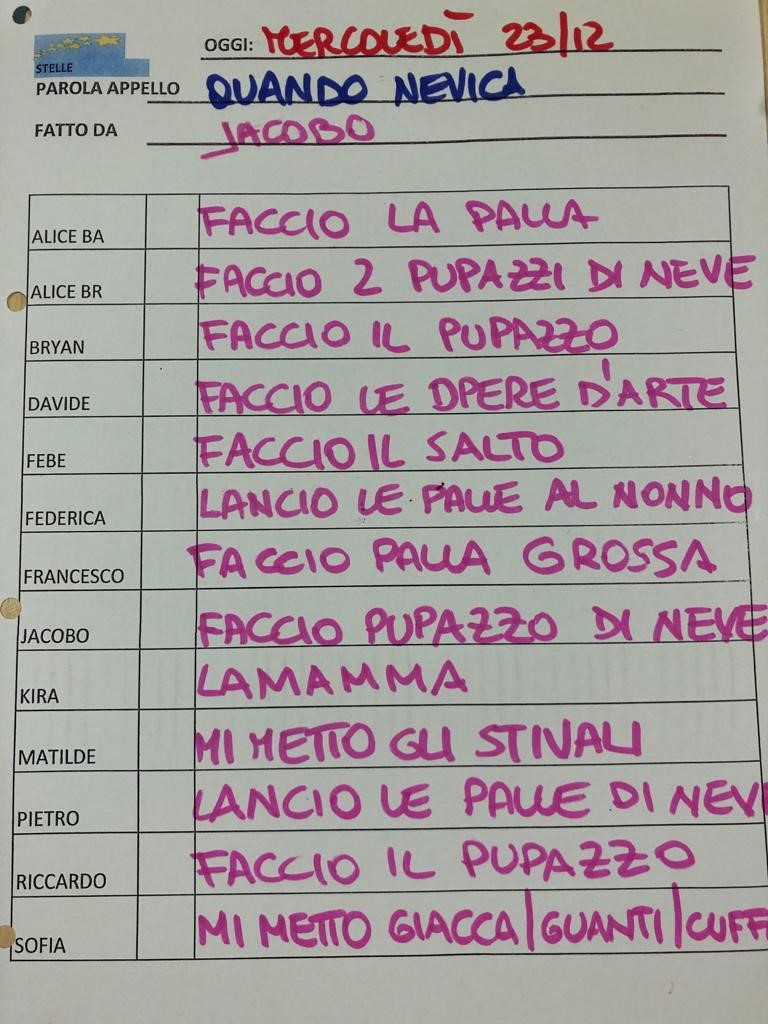 OGGI: MERCOLEDÌ 23/12
STELLE
PAROLA APPELLO QUANDO NEVICA
FATTO DA JACOBO
ALICE BA FACCIO LA PALLA
ALICE BR FACCIO 2 PUPAZZI DI NEVE
BRYAN FACCIO IL PUPAZZO
DAVIDE FACCIO LE OPERE D'ARTE
FEBE FACCIO IL SALTO
FEDERICA LANCIO LE PALLE AL NONNO
FRANCESCO FACCIO PALLA GROSSA
JACOBO FACCIO PUPAZZO DI NEVE
KIRA LA MAMMA
MATILDE MI METTO GLI STIVALI
PIETRO LANCIO LE PALLE DI NEVE
RICCARDO FACCIO IL PUPAZZO
SOFIA MI METTO GIACCA/GUANTI/CUFF